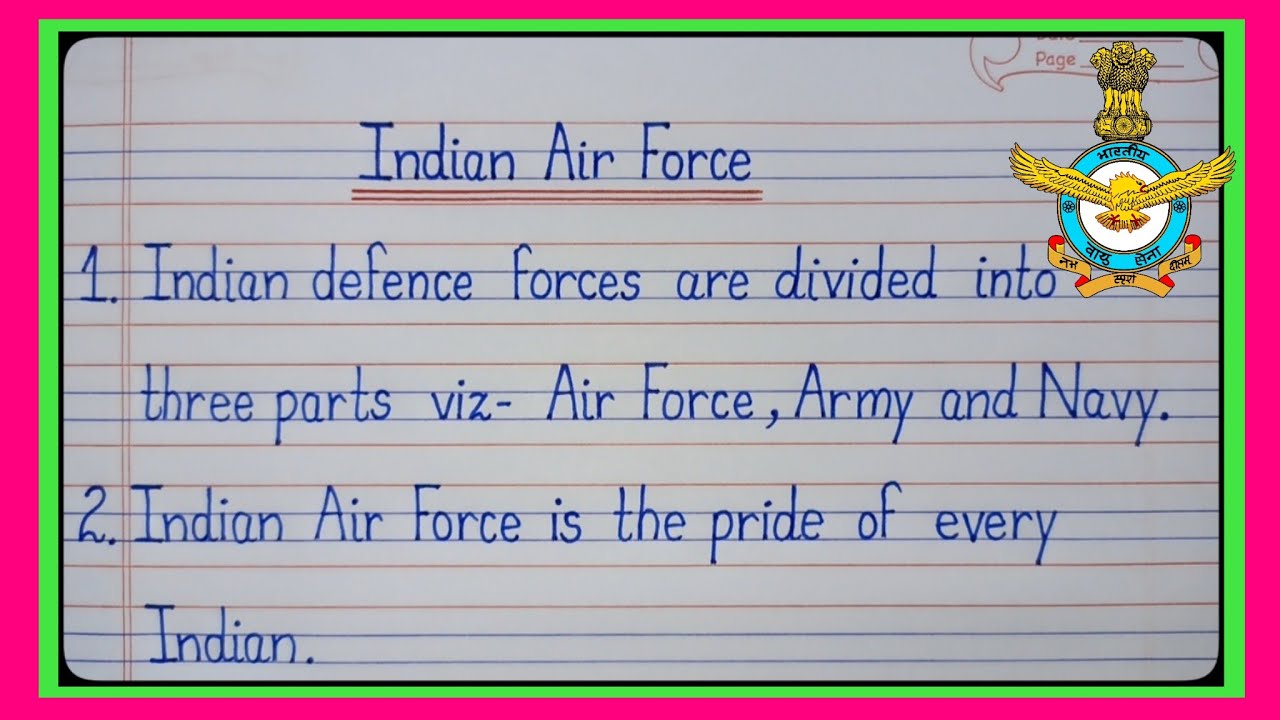 Date
Page
Indian Air Force
1. Indian defence forces are divided into
three parts viz- Air Force, Army and Navy.
2. Indian Air Force is the pride of every
Indian.
भारतीय
वायु सेना
नभः स्पृशं दीप्तम्